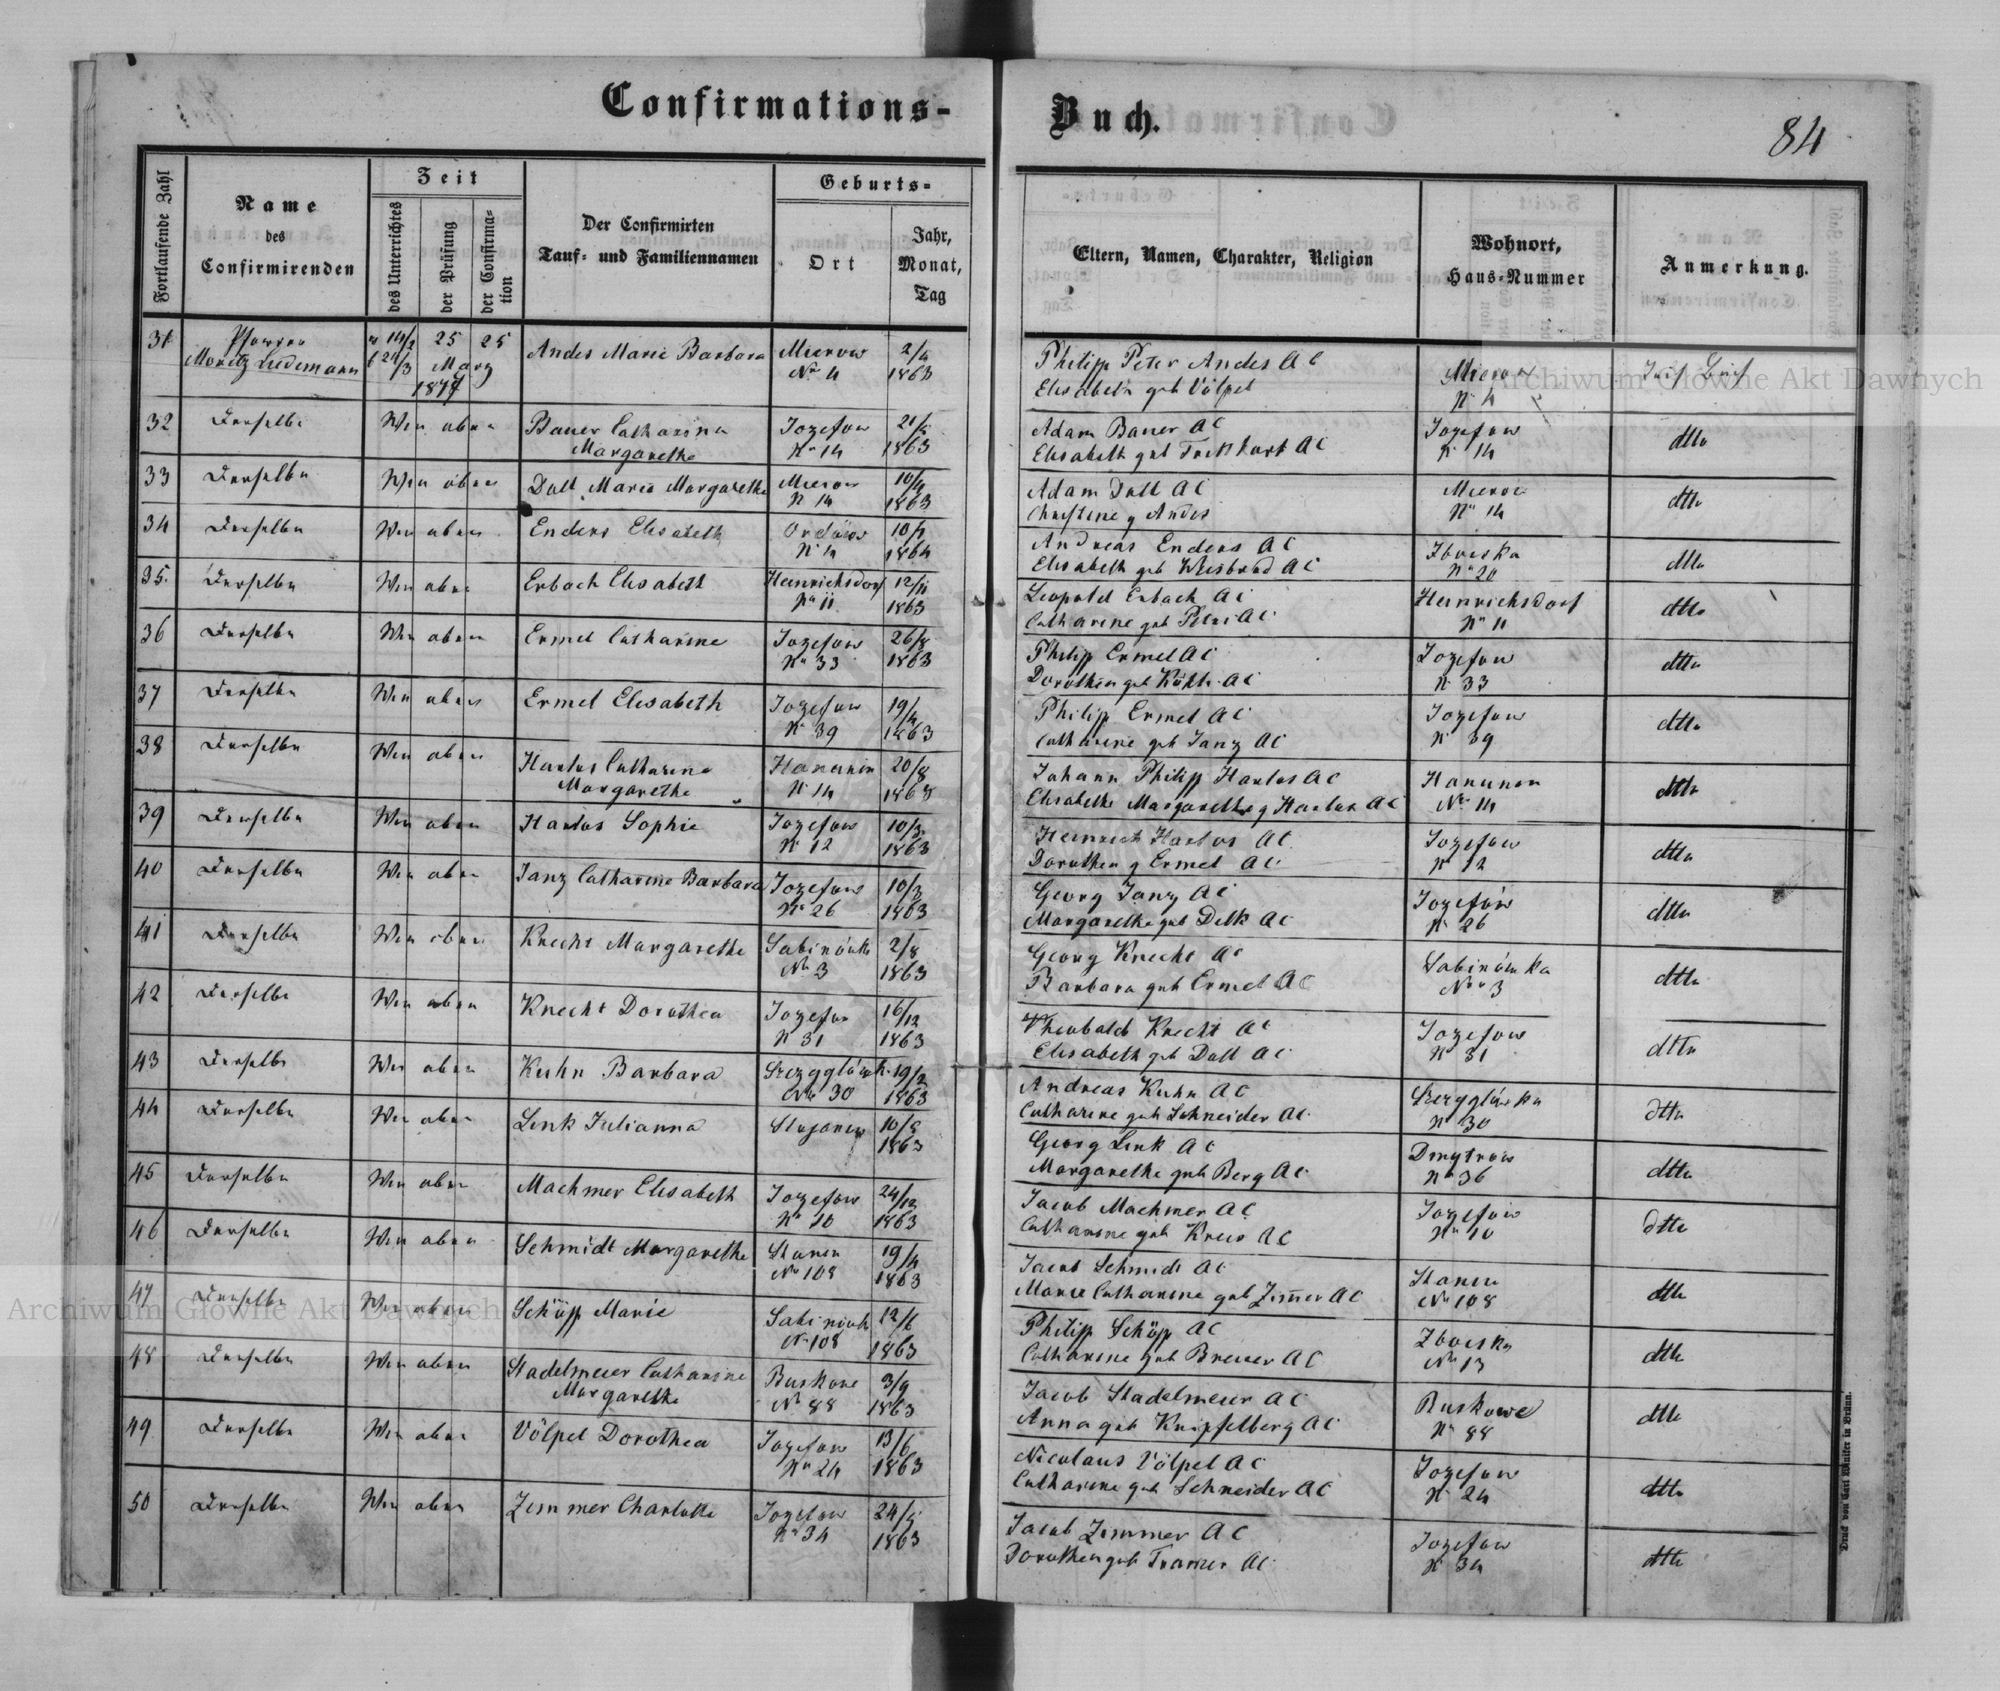 Confirmations-
Buch.
84
Fortlaufende Zahl
Name des Confirmirenden
Zeit
des Unterrichtes
der Prüfung
der Confirmation
Der Confirmirten Tauf- und Familiennamen
Geburts-
Ort
Jahr, Monat, Tag
Eltern, Namen, Charakter, Religion
Wohnort, Haus-Nummer
Anmerkung.
31 Pfarrer 25 25 Andes Marie Barbara Mierow 2/4 Philipp Peter Andes AC Mierow
Moritz März No 4 1863 Elisabeth geb Völpel No 4
32 Derselbe Wie oben Bauer Catharina Jozefow Adam Bauer AC Jozefow dtto
Margarethe No 14 1863 Elisabeth geb AC No 14
33 Derselbe Wie oben Dall Marie Margarethe Mierow 10/4 Adam Dall AC Mierow dtto
N 14 1863 Christine g Andes No 14
34 Derselbe Wie oben Enders Elisabeth Ordów Andreas Enders AC Zboiska dtto
1864 Elisabeth geb Weisbrod AC No 20
35. Derselbe Wie oben Erbach Elisabeth Heinrichsdorf 12/11 Leopold Erbach AC Heinrichsdorf dtto
No 11 1863 Catharine geb Petri AC No 11
36 Derselbe Wie oben Ermel Catharine Jozefow 26/8 Philipp Ermel AC Jozefow dtto
No 33 1863 Dorothea geb AC N 33
37 Derselbe Wie oben Ermel Elisabeth Jozefow 19/4 Philipp Ermel AC Jozefow dtto
No 39 1863 Catharine geb Janz AC N 39
38 Derselbe Wie oben Harlos Catharina Hanunin 20/8 Johann Philipp Harlos AC Hanunin dtto
Margarethe N 14 1863 Elisabethe Margarethe g Harlos AC No 14
39 Derselbe Wie oben Harlos Sophie Jozefow 10/3 Heinrich Harlos AC Jozefow dtto
N 12 1863 Dorothea g Ermel AC N 12
40 Derselbe Wie oben Janz Catharine Barbara Jozefow 10/3 Georg Janz AC Jozefów dtto
No 26 1863 Margarethe geb Delk AC N 26
41 Derselbe Wie oben Knecht Margarethe 2/8 Georg Knecht AC Sabinówka dtto
No 3 1863 Barbara geb Ermel AC No 3
42 Derselbe Wie oben Knecht Dorothea Jozefow 16/12 Theobald Knecht AC Jozefow dtto
N 31 1863 Elisabeth geb Dall AC N 31
43 Derselbe Wie oben Kuhn Barbara 19/2 Andreas Kuhn AC dtto
No 30 1863 Catharine geb Schneider AC No 30
44 Derselbe Wie oben Link Julianna Stojanow Georg Link AC Dmytrow dtto
1863 Margarethe geb Berg AC No 36
45 Derselbe Wie oben Machmer Elisabeth Jozefow 24/12 Jacob Machmer AC Jozefow dtto
No 10 1863 Catharine geb Kreis AC No 10
46 Derselbe Wie oben Schmidt Margarethe Stanin 19/4 Jacob Schmidt AC Stanin dtto
No 108 1863 Marie Catharine geb Zim̄er AC No 108
47 Derselbe Wie oben Schöpp Marie 12/6 Philipp Schöpp AC Zboiska dtto
No 108 1863 Catharine geb Breuer AC No 13
48 Derselbe Wie oben Stadelmeier Catharine Ruskowe 3/9 Jacob Stadelmeier AC Ruskowe dtto
Margarethe No 88 1863 Anna geb Knipfelberg AC No 88
49 Derselbe Wie oben Völpel Dorothea Jozefow 13/6 Nicolaus Völpel AC Jozefow dtto
No 24 1863 Catharine geb Schneider AC N 24
50 Derselbe Wie oben Zimmer Charlotte Jozefow Jacob Zimmer AC Jozefow dtto
No 34 1863 Dorothea geb Tramer AC N 34
Druck von Carl Winiker in Brünn.
Archiwum Główne Akt Dawnych
Archiwum Główne Akt Dawnych